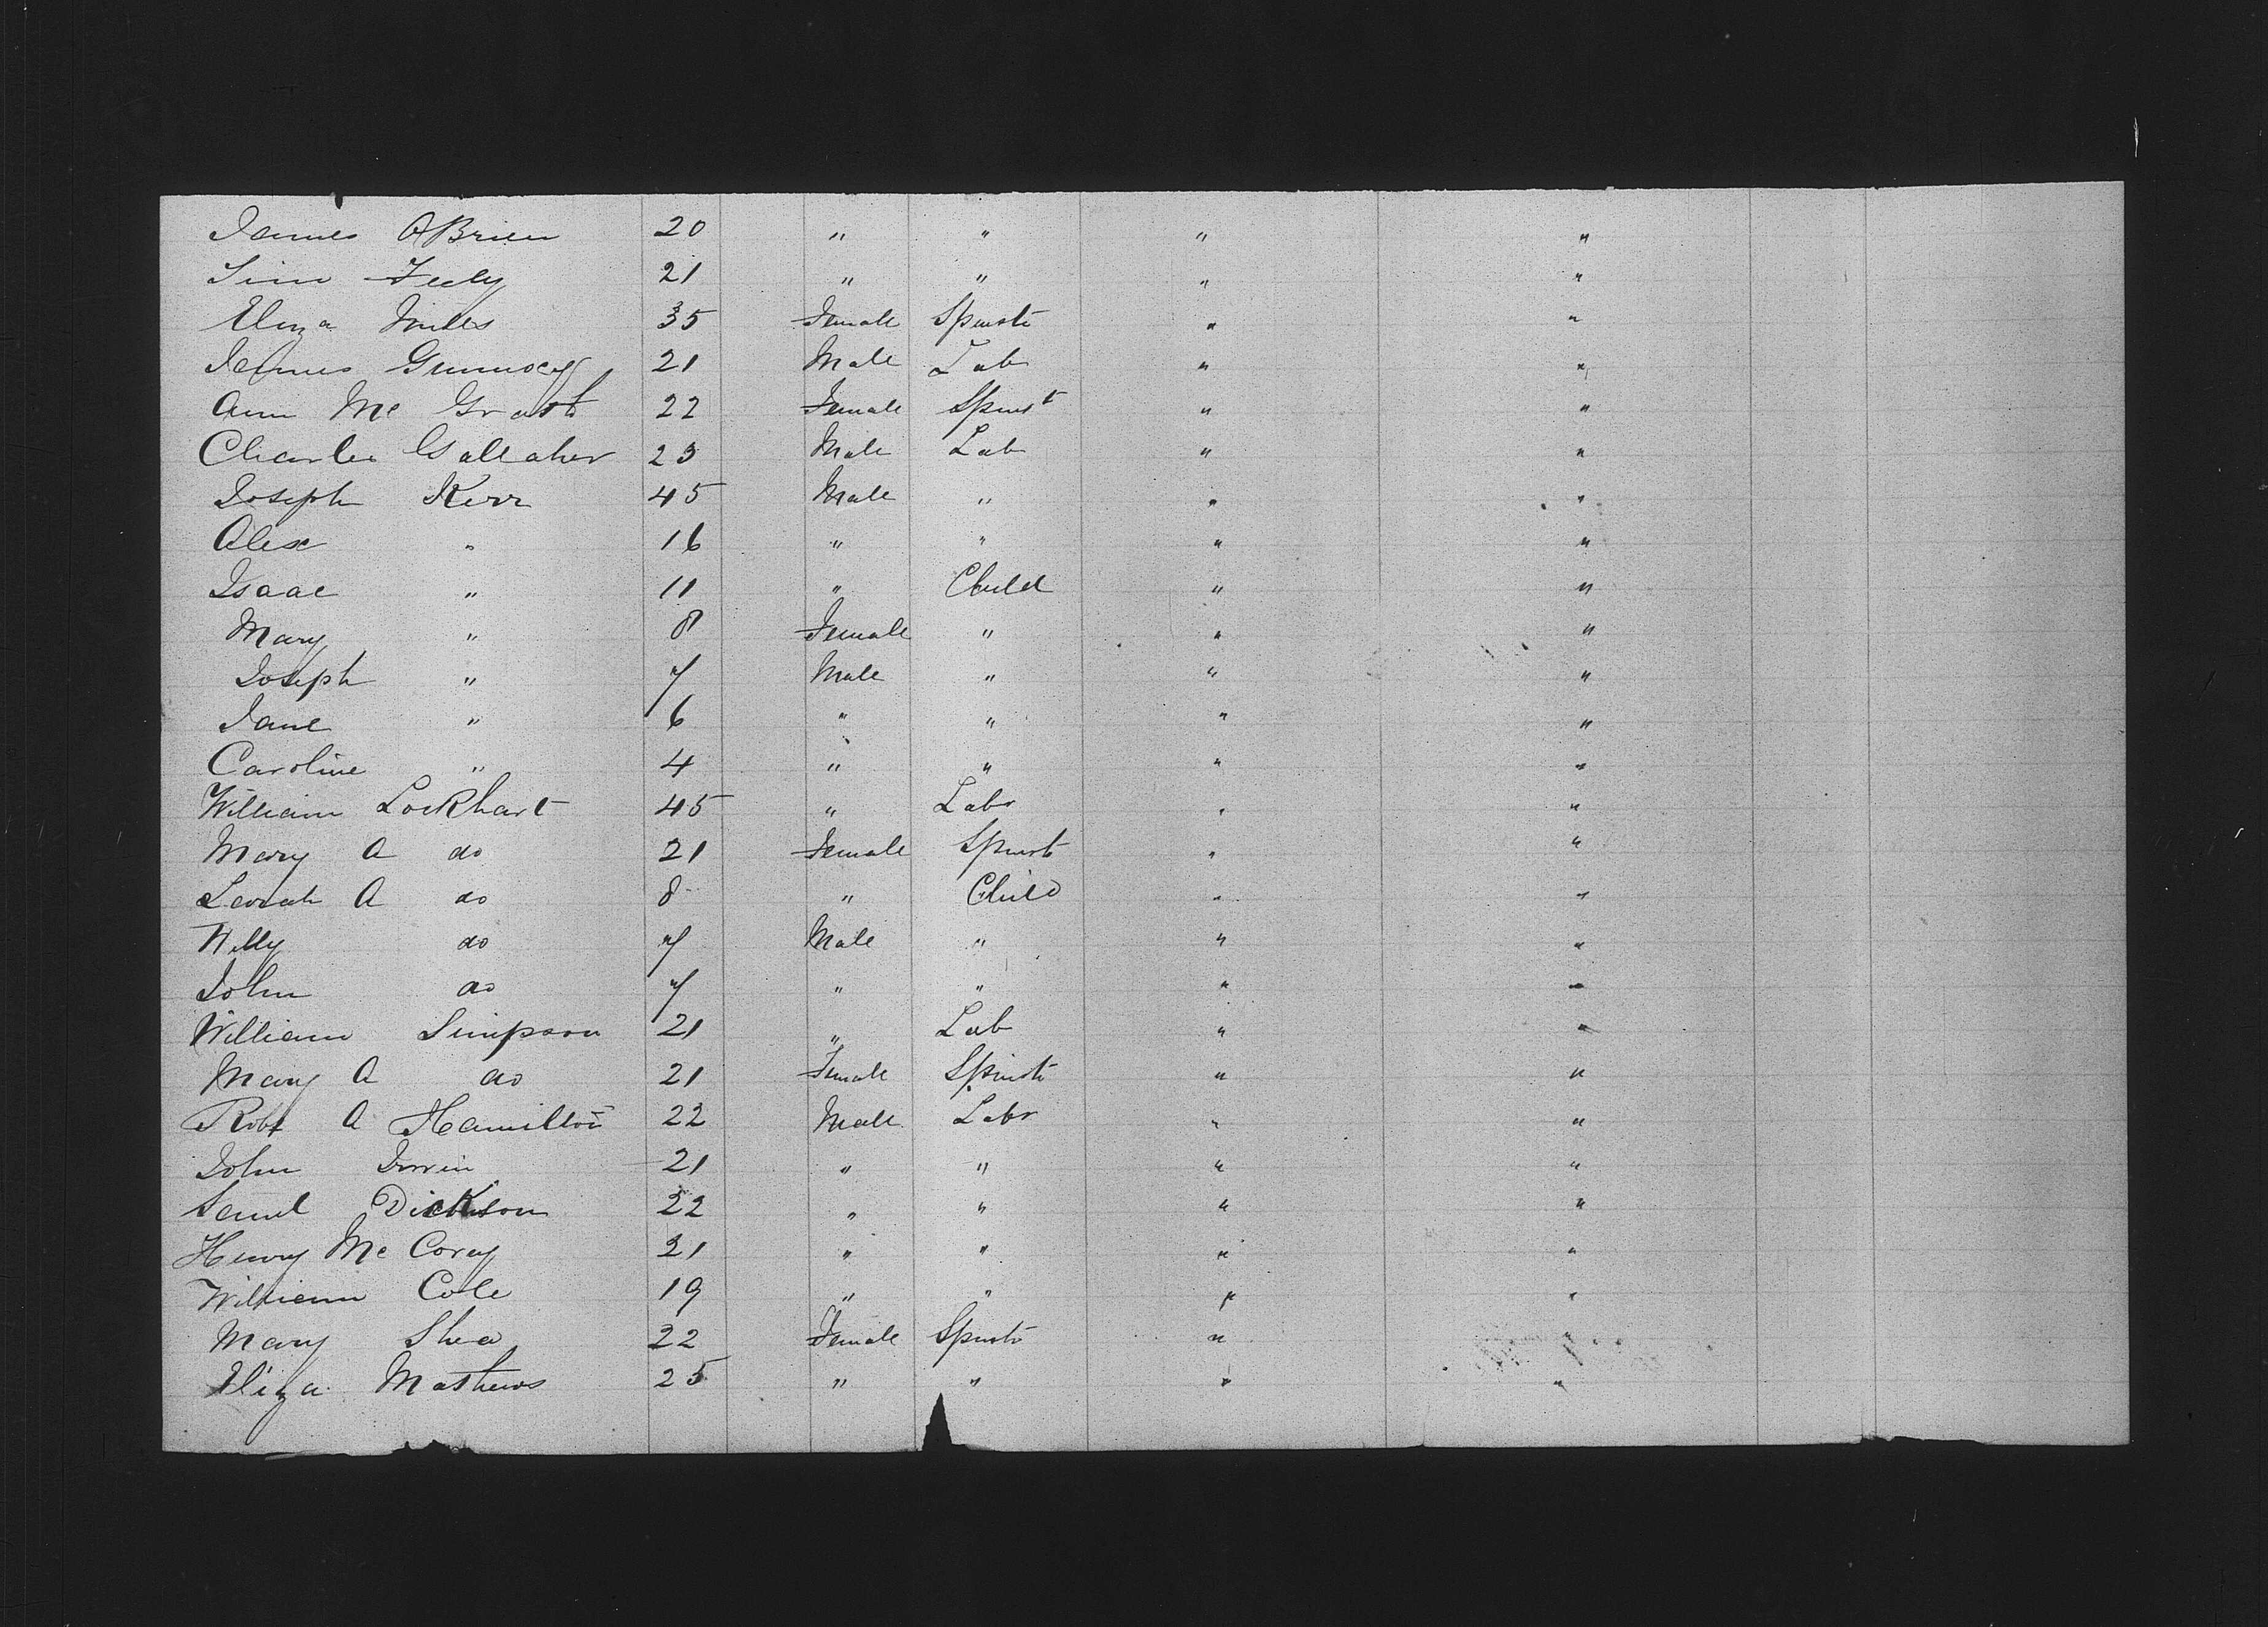 James OBrien 20 " " " "
Tim Feely 21 " " " "
Eliza Miles 35 Female Spinstr " "
James 21 Male Lab " "
Ann Mc Grath 22 Female Spinst " "
Charles Gallaher 23 Male Lab " "
Joseph Kerr 45 Male " " "
Alex " 16 " " " "
Isaac " 11 " Child " "
Mary " 8 Female " " "
Joseph " 7 Male " " "
Jane " 6 " " " "
Caroline " 4 " " " "
William Lockhart 45 " Labr " "
Mary A do 21 Female Spinst " "
Sarah A do 8 " Child " "
Willy do 7 Male " " "
John do 7 " " " "
William Simpson 21 " Lab " "
Mary A do 21 Female Spinstr " "
Robt A Hamilton 22 Male Labr " "
John Irwin 21 " " " "
Saml Dickson 22 " " " "
Henry Mc Corey 21 " " " "
William Cole 19 " " " "
Mary Shea 22 Female Spinstr " "
Eliza Mathews 25 " " " "